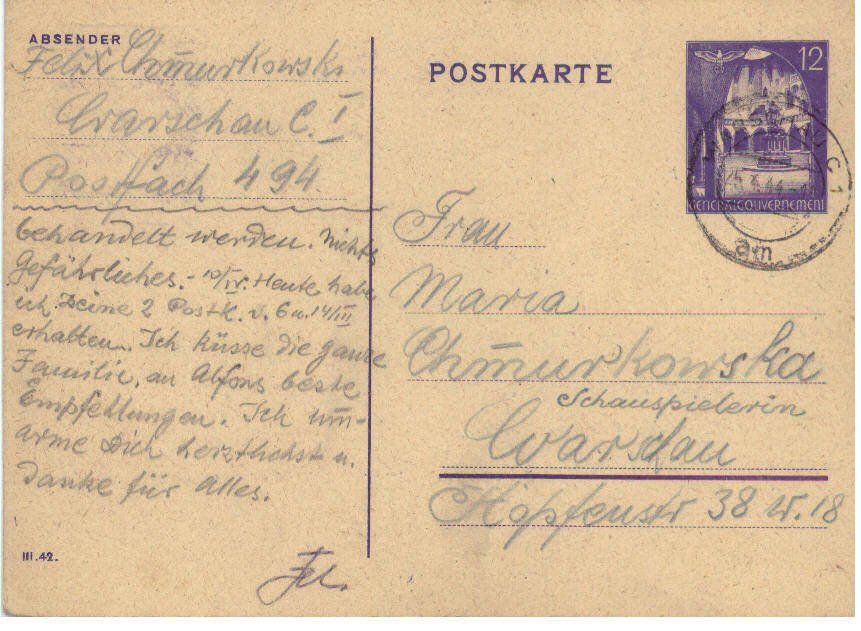 ABSENDER
Felix Chmurkowski
Warschau C. 1
Postfach 494
behandelt werden. Nichts
Gefährliches. - 10/IV. Heute habe
ich Deine 2 Postk. v. 6 u. 14/III
erhalten. Ich küsse die ganze
Familie, an Alfons beste
Empfehlungen. Ich um-
arme Dich herzlichst u.
danke für alles.
Fel.
III.42.
POSTKARTE
12
GENERALGOUVERNEMENT
C1
am
Frau
Maria
Chmurkowska
Schauspielerin
Warschau
Hopfenstr 38 W. 18